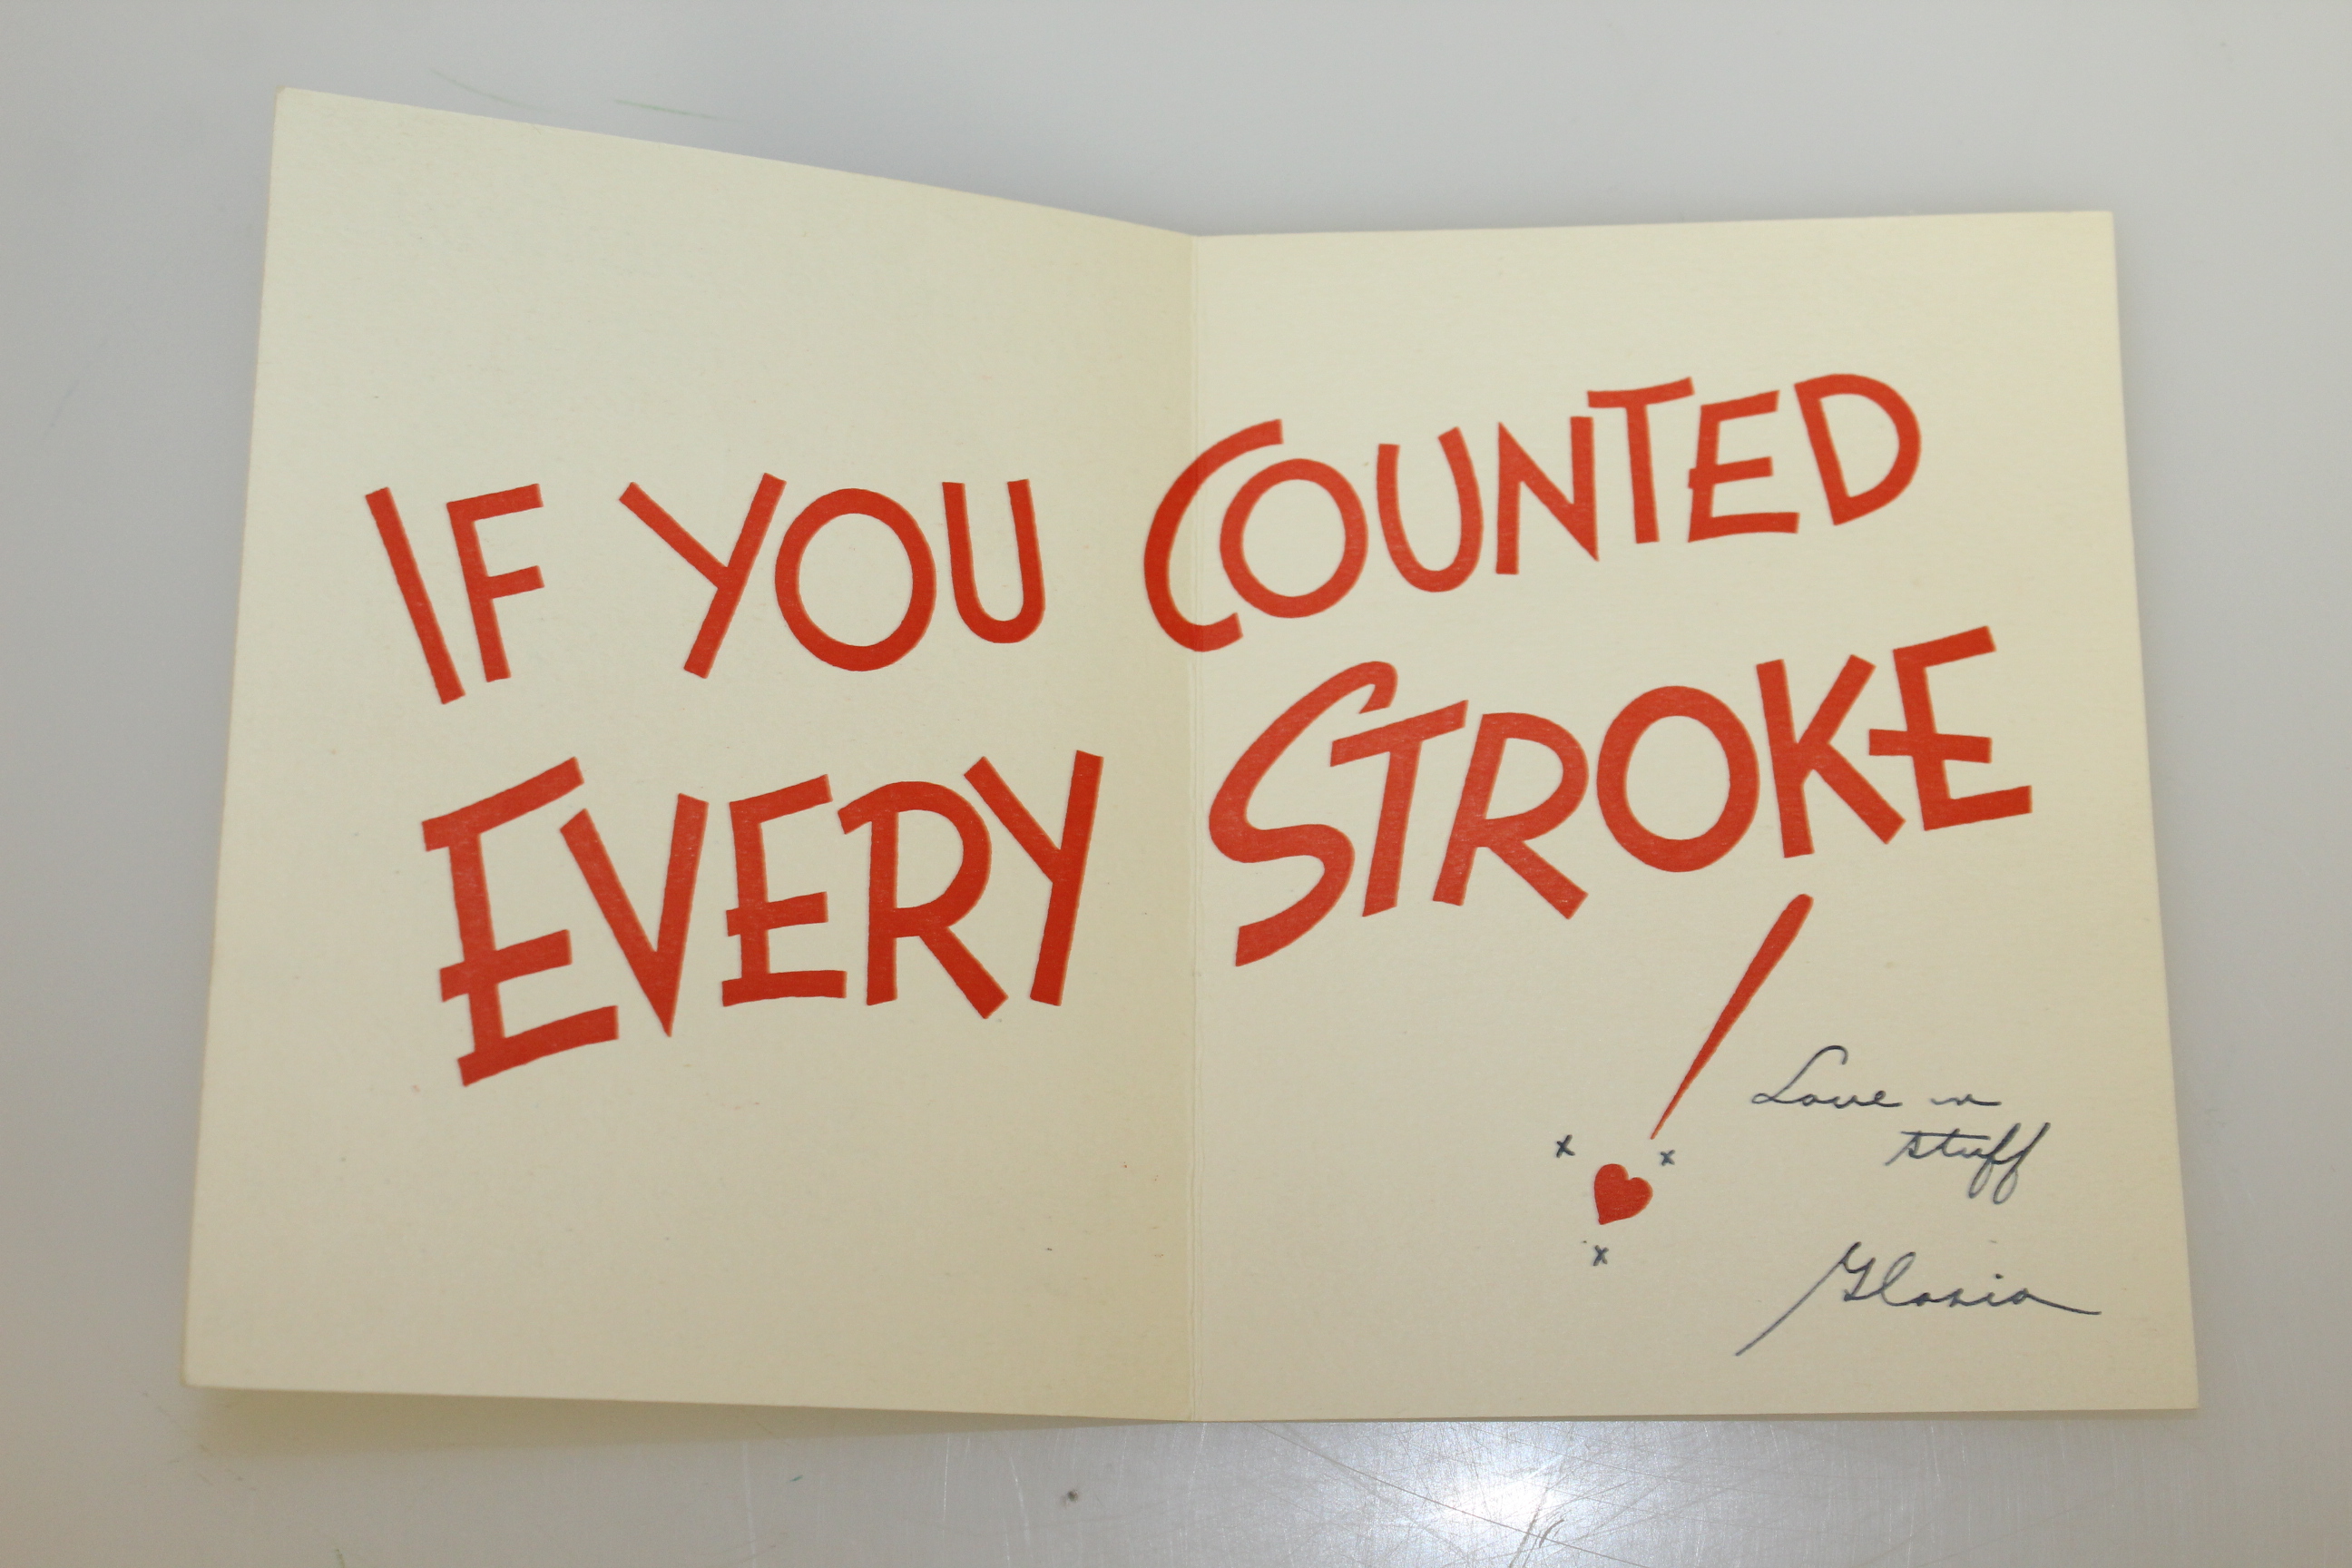 IF YOU COUNTED
EVERY STROKE!
x x
x
Love n
stuff
Gloria